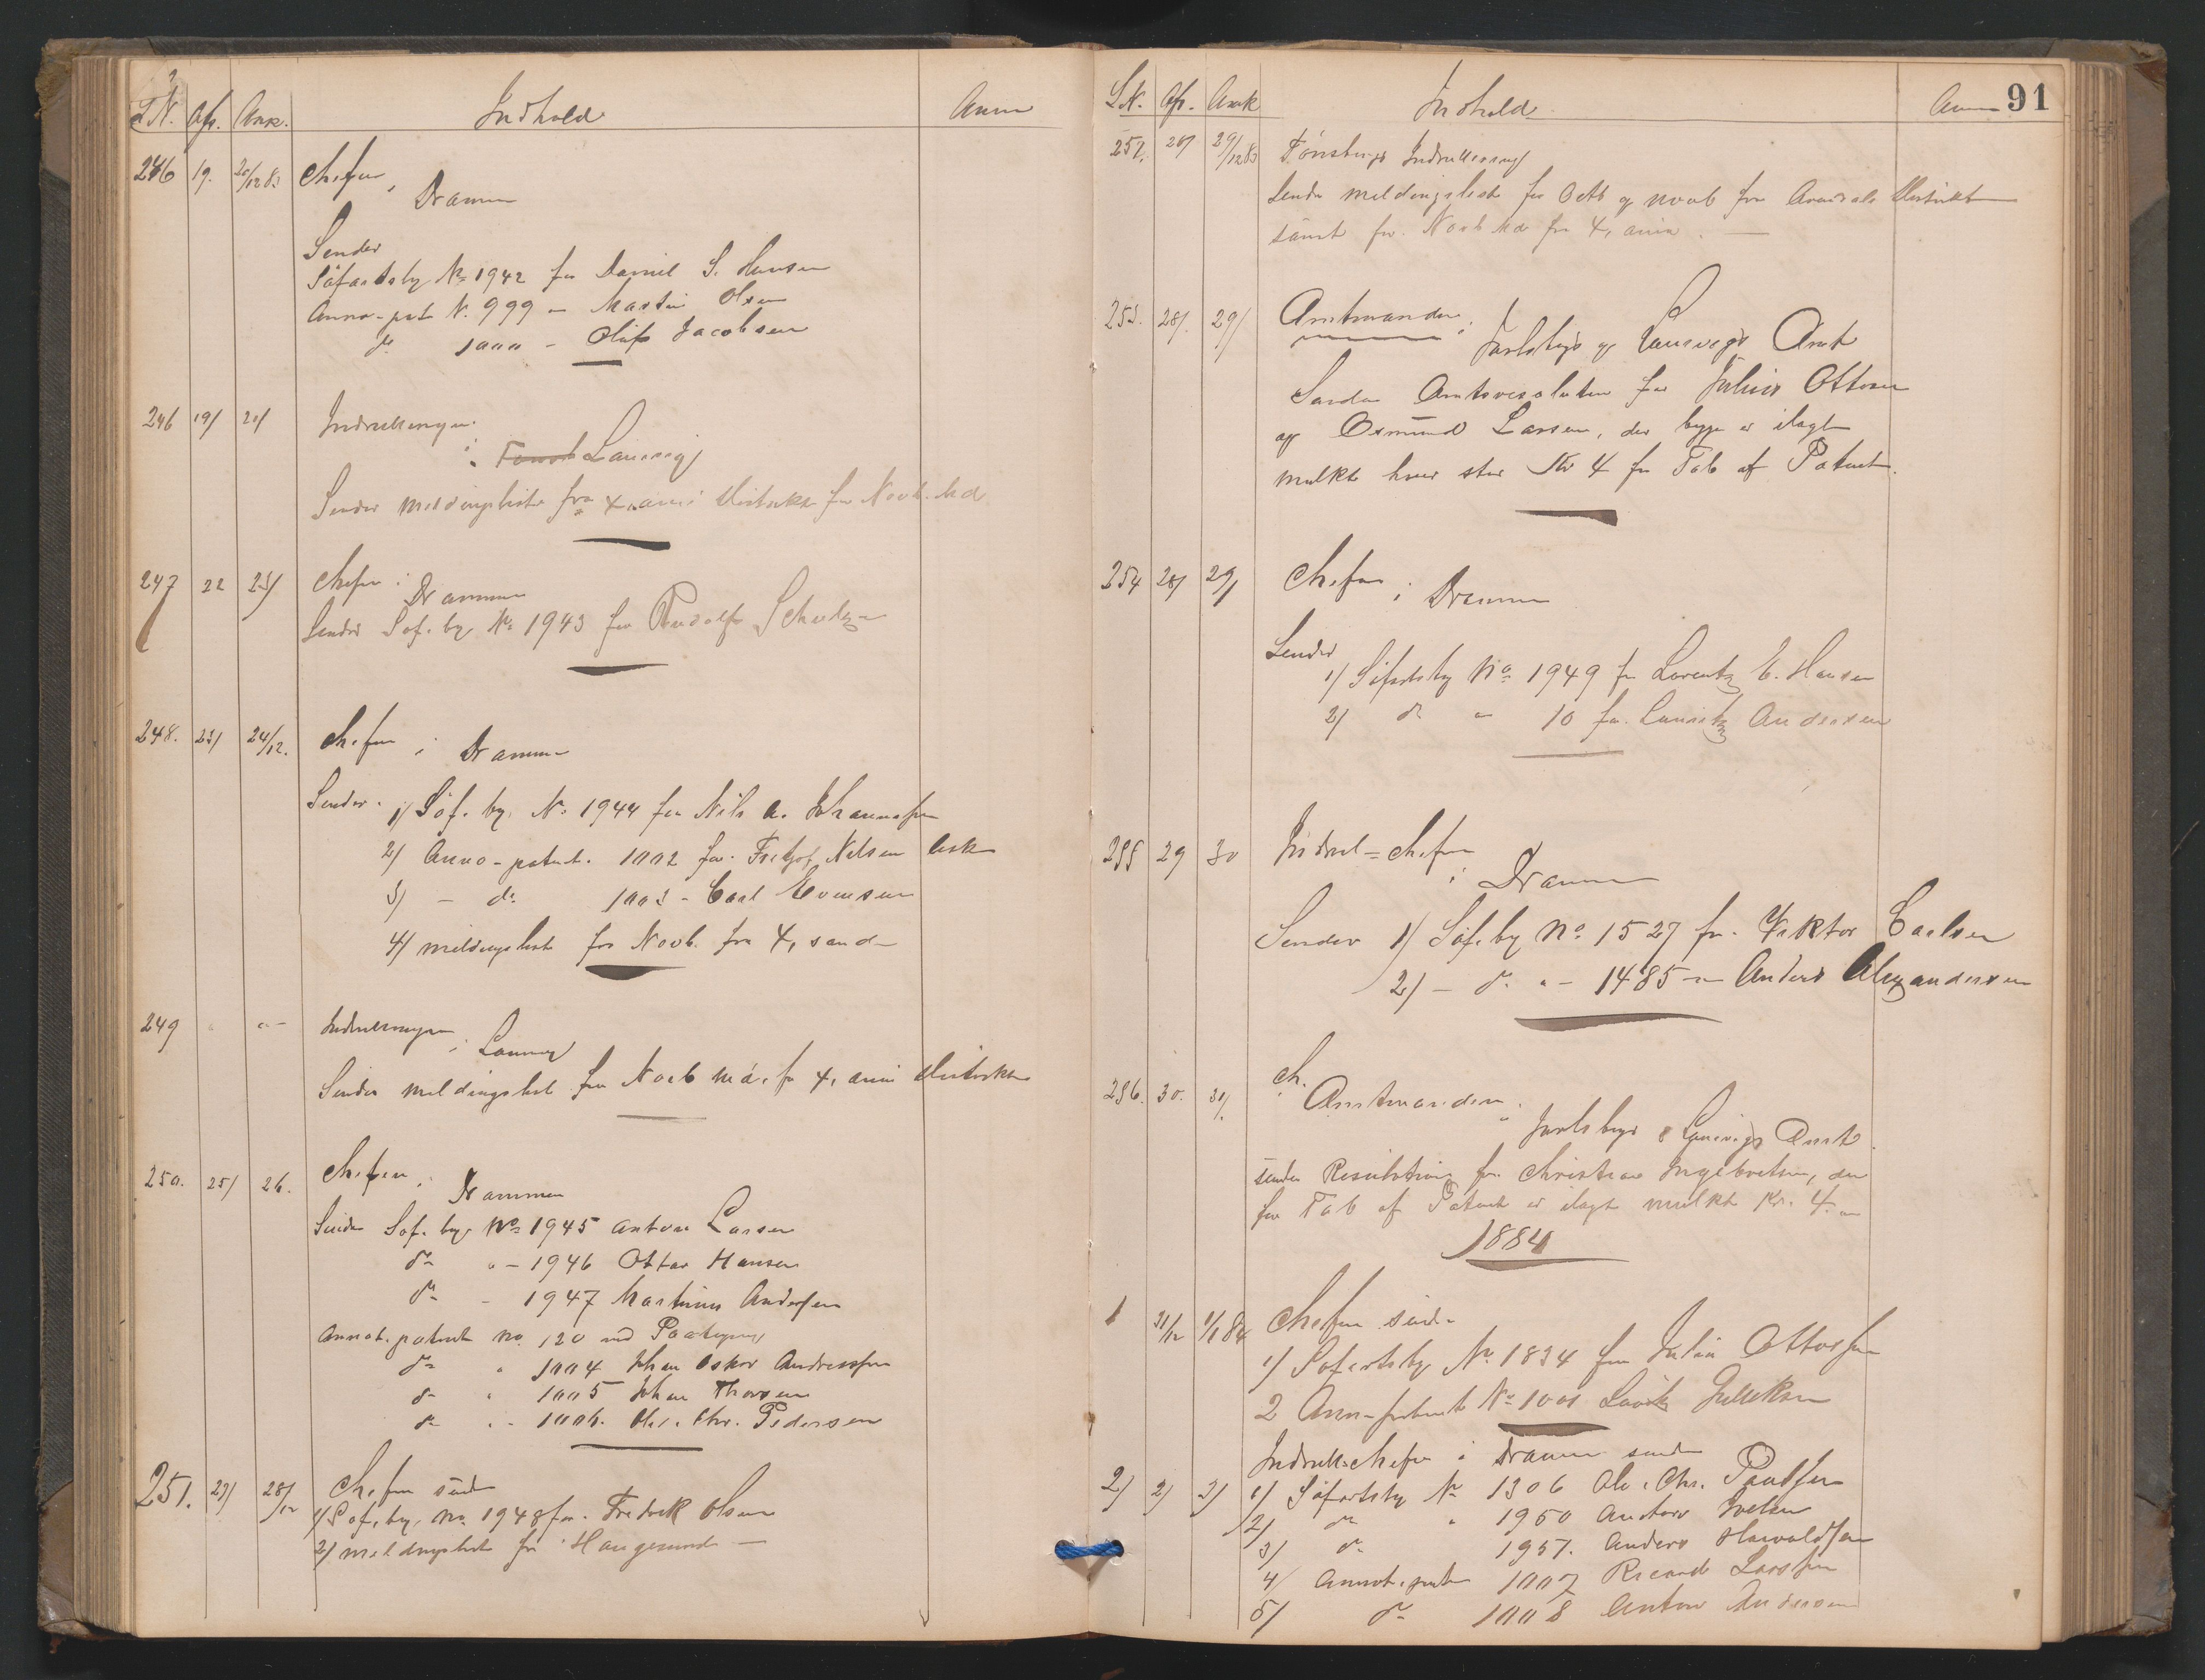 L N. Afs. Ank. Indhold Anm
246 19. 20/12 83 Chefen,
Drammen
Sender
Söfartsby No 1942 for Daniel S. Hansen
Anno-pat N. 999 - Martin Olsen
do 1000 - Oluf Jacobsen
246 19/ 20/ Indrulleringen
i Laurvig
Sender meldingsliste fra x, anm: distrikt for Novb. Md.
247 22 23/ Chefen i
Drammen
Sender Sof. by No 1943 for Rudolf Schultz
248. 23/ 24/12. Chefen i
Drammen
Sender. 1/ Söf. by. No. 1944 for Nils A. Johannessen
2/ Anno-patent. 1002 for. Fritjof Nilsen
3/ - do 1003 - Carl Evensen
4/ meldingsliste for Novb. fra 4, sand
249 " " - Indrulleringen
i Laurvig
Sender meldingsliste for Novb Md. fr 4, anm distrikt
250. 25/ 26. Chefen,
Drammen
Sender Sof. by. No 1945 Anton Larsen
do " - 1946 Ottar Hansen
do - 1947 Martinius Andersen
Annot. patent no. 120 med Paategning
do " 1004 Johan Oskar Andreassen
do " 1005 Johan Thorsen
do " - 1006. Ole. Chr. Pedersen
251. 27/ 28/12 Chefen sender
1/ Sof. by. no. 1948 for. Fredrik Olsen
2/ meldingsliste fr Haugesund -
L N. Afs. Ank Indhold Anm 91
252. 28/ 29/12 83 Tönsbergs Indrullering
Sender meldingsliste for Octb og Novb fra Arendals Distrikt
samt for. Novb Md fra 4, anm. -
253. 28/. 29/ Amtmanden
i Jarlsbergs og Laurvigs Amt
Sender Amtsresolution for Julius Ottosen
og Osmund Larsen, der begge er ilagt
mulkt hver stor Kr 4 for Tab af Patent.
254 28/ 29/ Chefen i
Drammen
Sender
1/ Söfartsby No 1949 for Lorentz E. Hansen
2/ do " 10 for. Lauritz Andersen
255 29 30 Indrul=chefen
i Drammen
Sender 1/ Söf. by No. 1527 for. Viktor Carlsen
2/ - do. " - 1485 - Anders Alexandersen
Ch.
256. 30. 31/. Amtmanden
i Jarlsbergs & Laurvigs Amt.
sender Resolution for Christian Ingebretsen, der
for Tab af Patent er ilagt mulkt Kr. 4. -
1884
1 31/12 1/1 84 Chefen sender
1/ Söfartsby No 1834 for Julius Ottosen
2 Ann-patent No 1001 Gulliksen
Indrull=chefen i Drammen sender
2/ 2/ 3/ 1/ Söfartsby No 1306 Ole. Chr. Paulsen
2/ do " 1950 Anders Iversen
3/ do 1951. Anders Harvaldsen
4/ Annot. patent 1007 Ricard Larsen
5/ do 1008 Anton Andersen